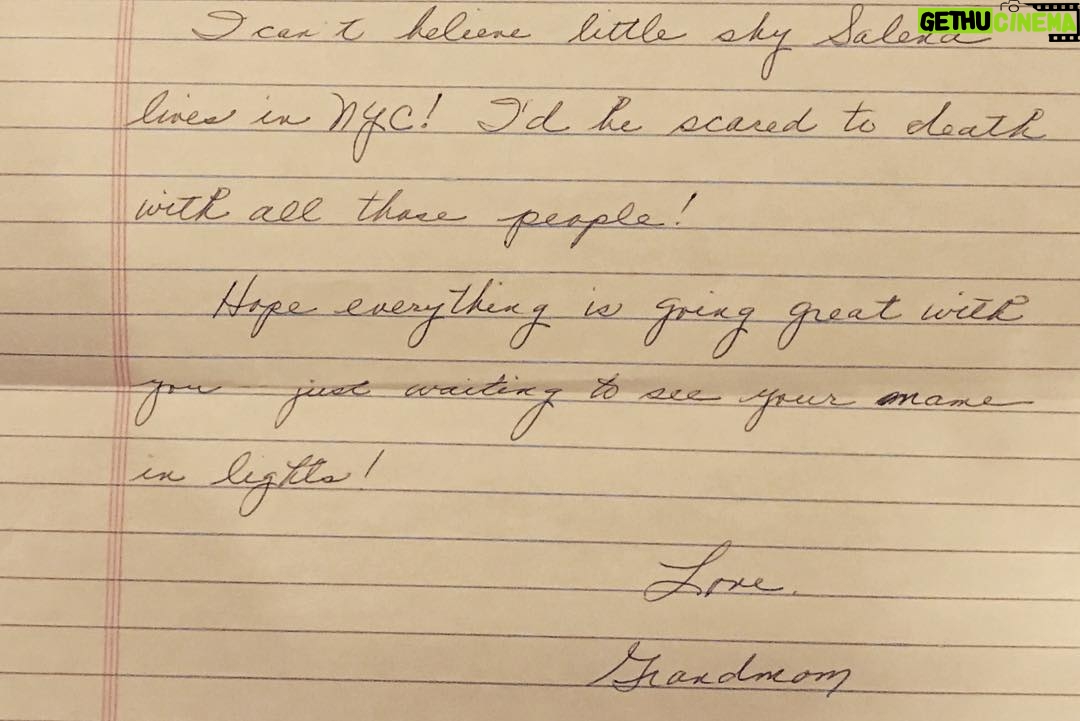 GETHUCINEMA
I can't believe little shy Salena
lives in NYC! I'd be scared to death
with all those people!
Hope everything is going great with
you - just waiting to see your name
in lights!
Love,
Grandmom